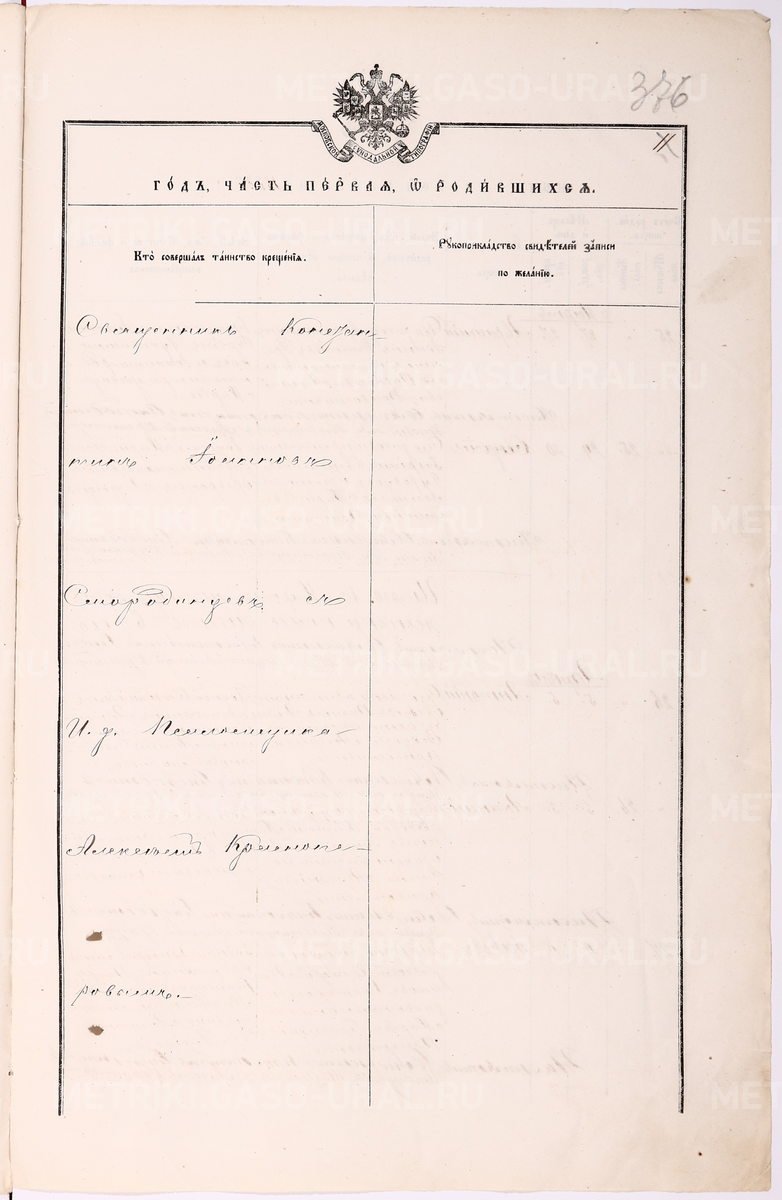 376
11
МОСКОВСКОЙ СѴНОДАЛЬНОЙ ТИПОГРАФІИ
Го́дъ, ча́сть пе́рваѧ, ѡ҆ роди́вшихсѧ.
Кто̀ соверша́лъ та́инство креще́нїѧ.
Рꙋкоприкла́дство свидѣ́телей за́писи
по жела́нїю.
Священникъ Констан-
тинъ Іоанновъ
Смородинцевъ съ
И. д. Псаломщика
Алексѣемъ Краснопе-
ровымъ.
METRIKI.GASO-URAL.RU